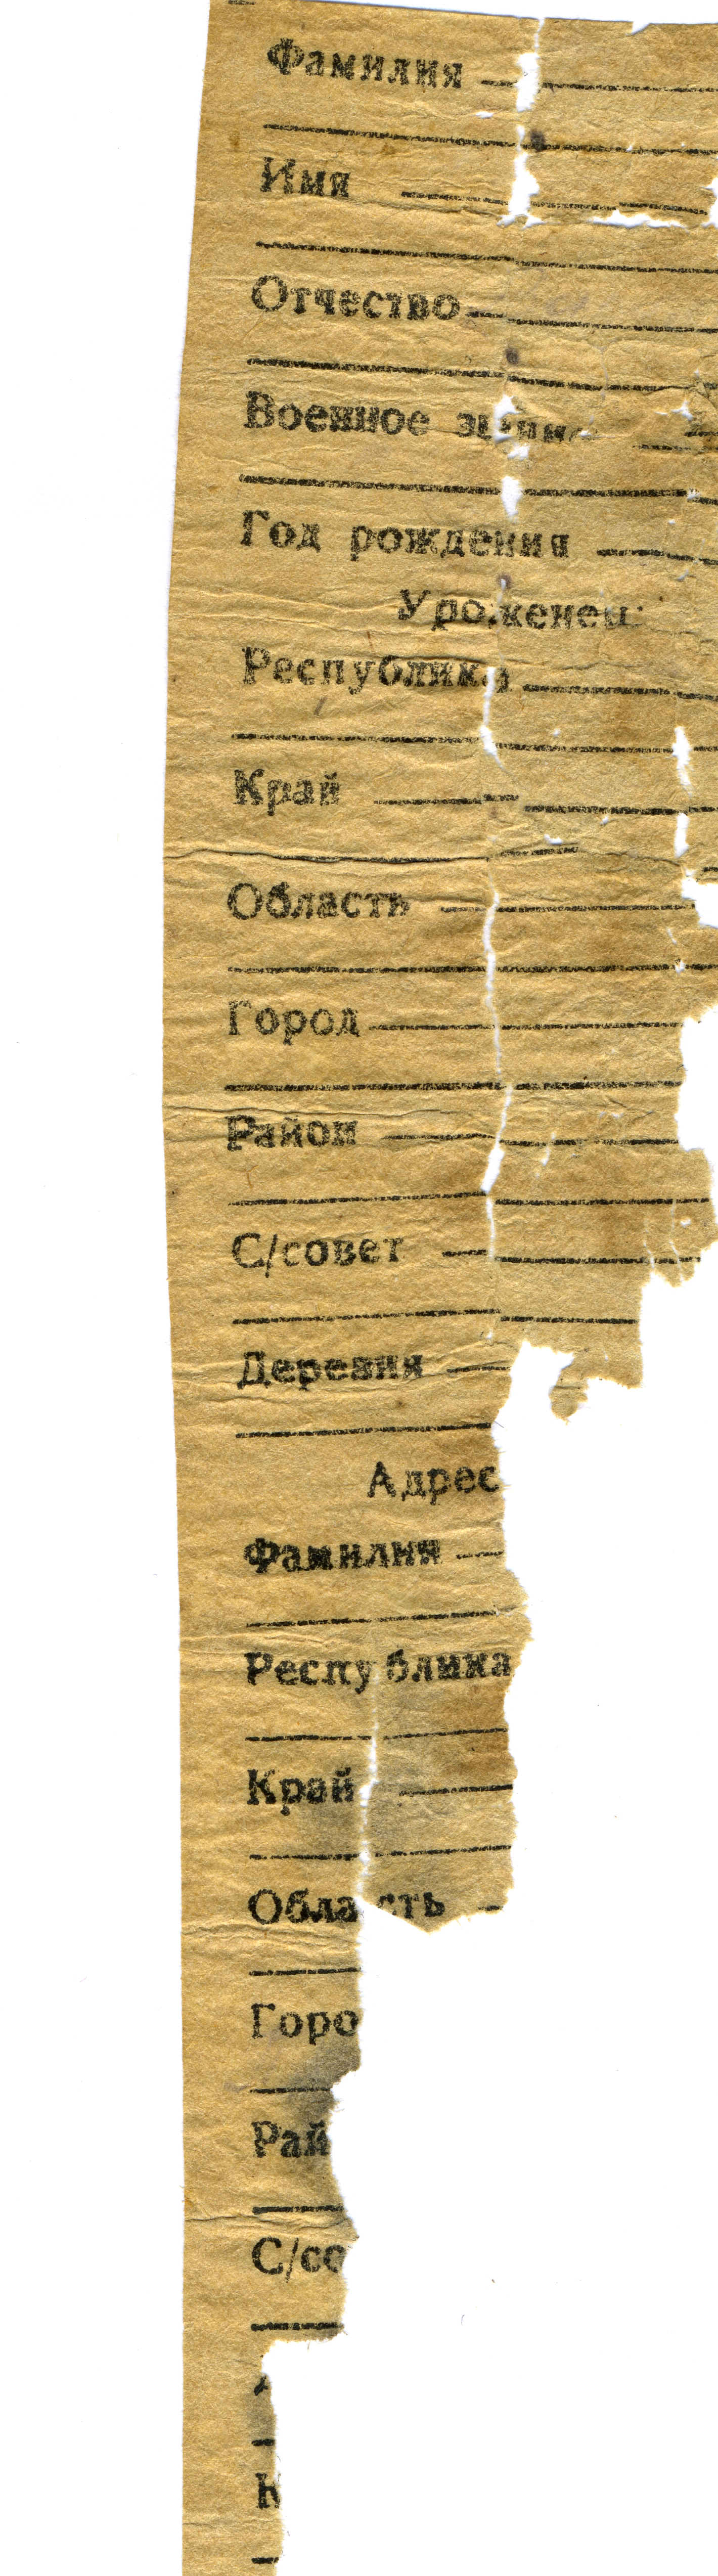 Фамилия
Имя
Отчество
Военное
Год рождения
Уроженец:
Республика
Край
Область
Город
Район
С/совет
Деревня
Адрес
Фамилия
Республика
Край
Область
Горо
Рай
С/со